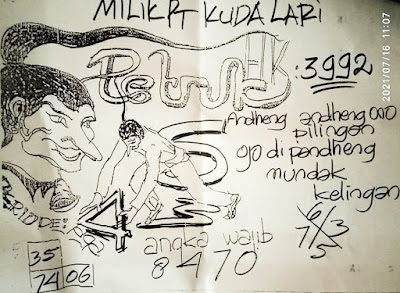 MILIK RT KUDA LARI
HK : 3992
Andheng andheng ono
pilingan
ojo di pandheng
mundak
kelingan
PERIODE:
4 5
angka wajib
8470
6/3
7/5
35
74 06
2021/07/16 11:07